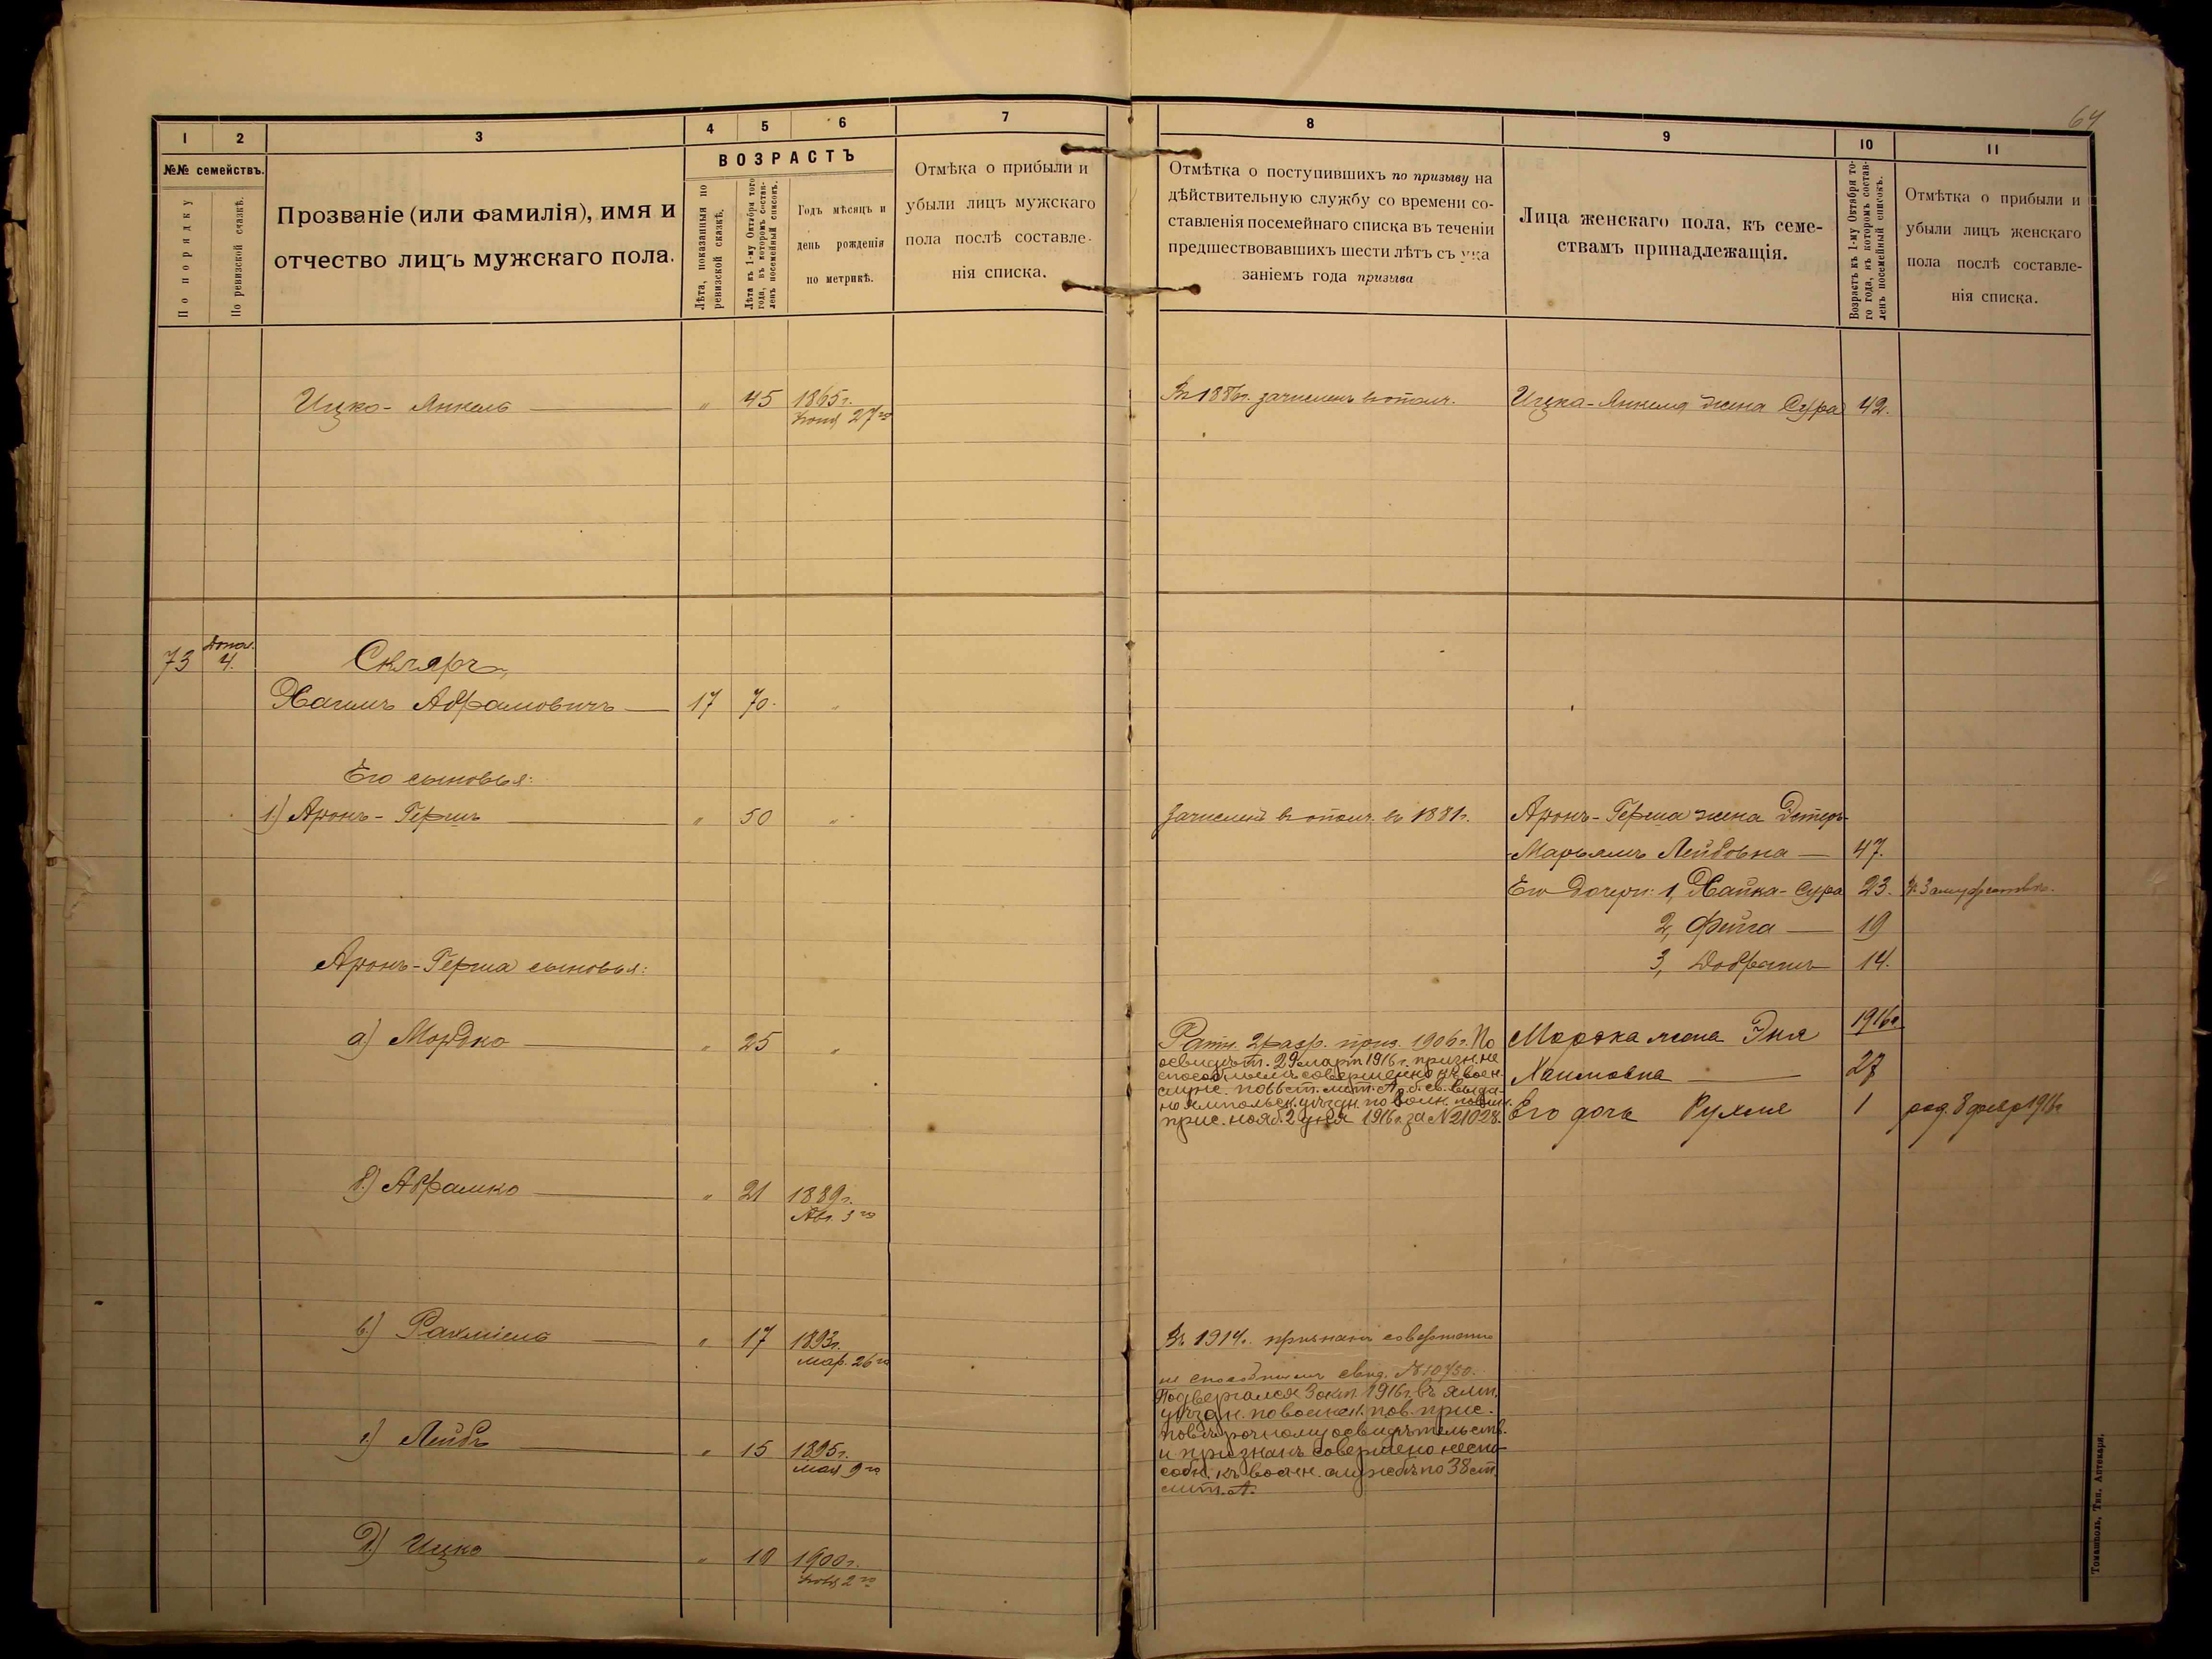 64
1 2 3 4 5 6 7
№№ семействъ.
По порядку
По ревизской сказкѣ.
Прозваніе (или фамилія), имя и
отчество лицъ мужскаго пола.
ВОЗРАСТЪ
Лѣта, показанныя по
ревизской сказкѣ.
Лѣта къ 1-му Октября того
года, въ которомъ состав-
ленъ посемейный списокъ.
Годъ мѣсяцъ и
день рожденія
по метрикѣ.
Отмѣка о прибыли и
убыли лицъ мужскаго
пола послѣ составле-
нія списка.
8 9 10 11
Отмѣтка о поступившихъ по призыву на
дѣйствительную службу со времени со-
ставленія посемейнаго списка въ теченіи
предшествовавшихъ шести лѣтъ съ ука
заніемъ года призыва
Лица женскаго пола, къ семе-
ствамъ принадлежащія.
Возрастъ къ 1-му Октября то-
го года, въ которомъ состав-
ленъ посемейный списокъ.
Отмѣтка о прибыли и
убыли лицъ женскаго
пола послѣ составле-
нія списка.
Ицко-Янкель — " 45 1865г.
27го
Въ 1886г. зачисленъ въ ополч.
Ицка-Янкеля жена Сура 42.
73 Допол. 4. Скляръ
Хаимъ Абрамовичъ — 17 70. "
Его сыновья:
1) Аронъ-Гершъ — " 50 "
Зачисленъ въ ополч. въ 1881г.
Аронъ-Герша жена Эстеръ-
-Марьямъ Лейбовна — 47.
Его дочери: 1, Хайка-Сура 23. въ Замужествѣ.
2, Фейга — 19
3, Добрышъ 14.
Аронъ-Герша сыновья:
а) Мордко — " 25 "
Ратн. 2 разр. приз. 1906г. По
освидѣт. 29 март 1916г. призн. не
способнымъ совершенно къ воен.
служ.
но ямпольск. уѣздн. по воин. повин.
прис. нояб. 2 дня 1916г. за №21028.
Мордка жена Эня 1916г
Хаимовна — 27
Его дочь Рухля 1 род. 8 февр 1916г
б) Абрамко — " 21 1889г.
Авг. 3го
в) Рахміель — " 17 1893г.
Мар. 26го
Въ 1914г. признанъ совершенно
не способнымъ свид. №10750.
Подвергался 3 окт. 1916г. въ ямп.
уѣздн. по воинск. пов. прис.
повѣрочному освидѣтельств.
и признанъ совершено неспо-
собн. къ воен. службѣ по 38 ст.
лит. А.
г) Лейбъ — " 15 1895г.
мая 9го
д) Ицко — " 10 1900г.
2го
Томашполь, Тип. Аптекаря.